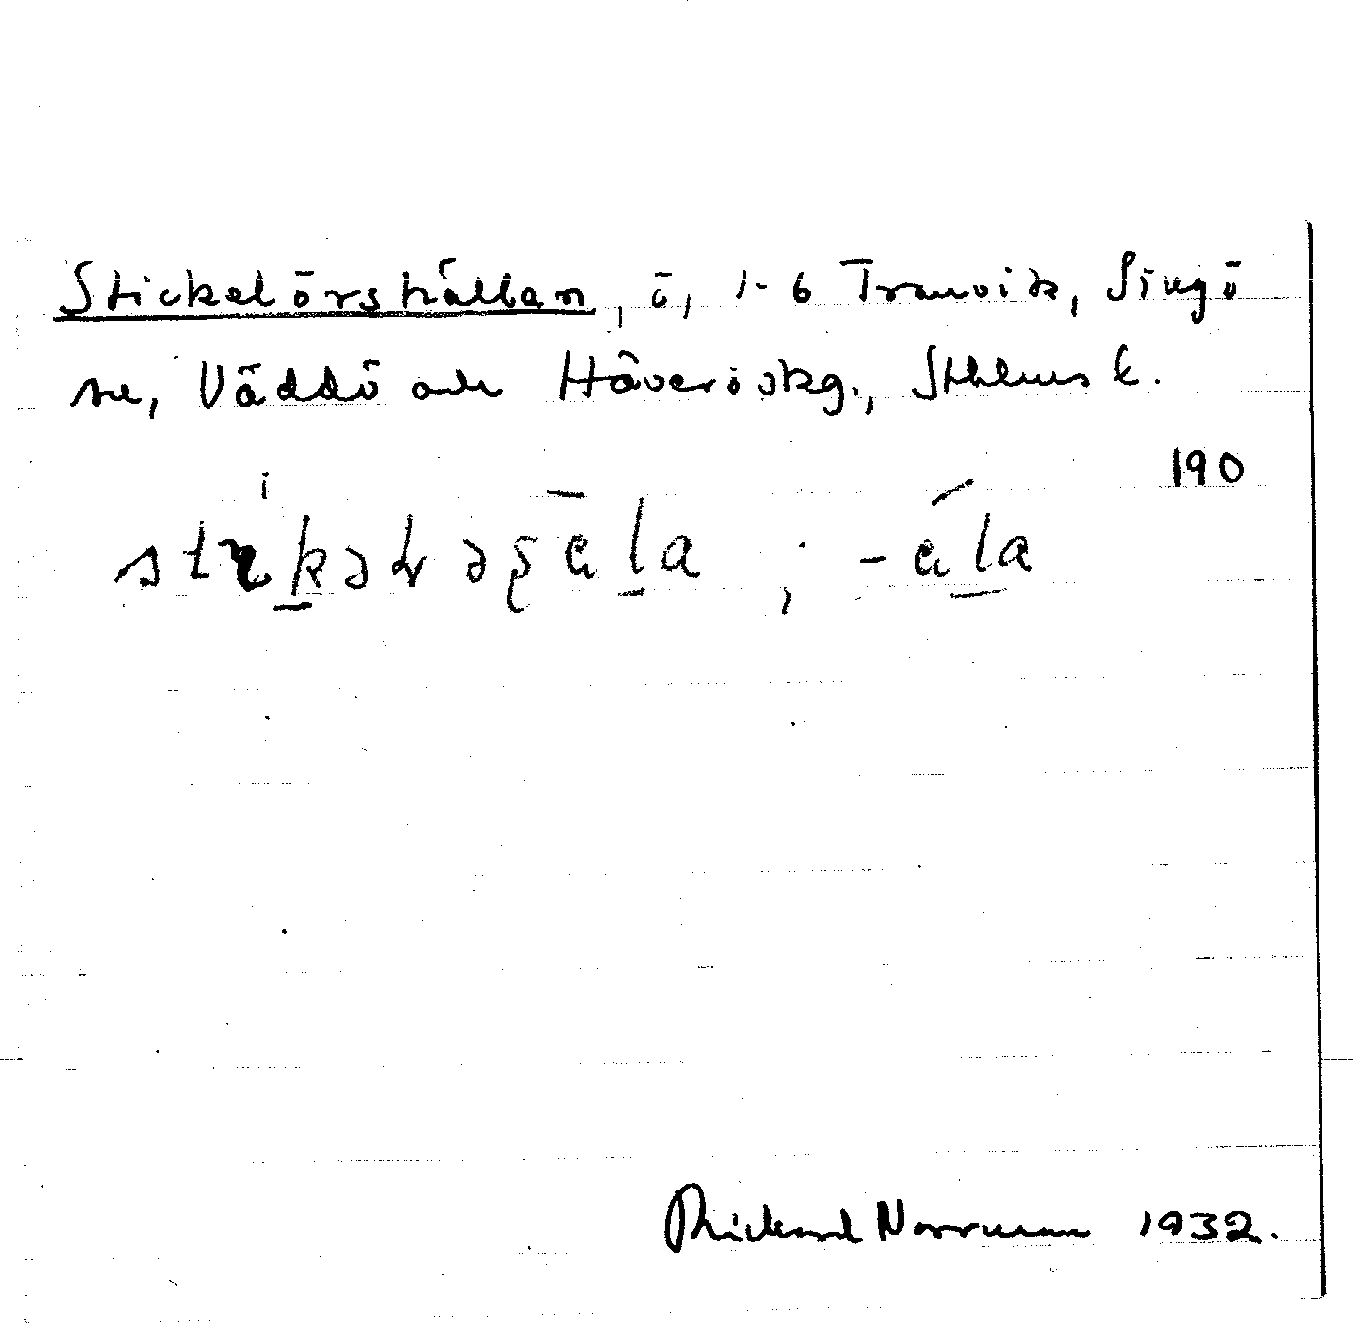 Stickelörskällan, ö, 1-6 Tranvik, Singö
sn, Väddö och Häverö skg., Sthlms l.
190
Rickard Norrman 1932.